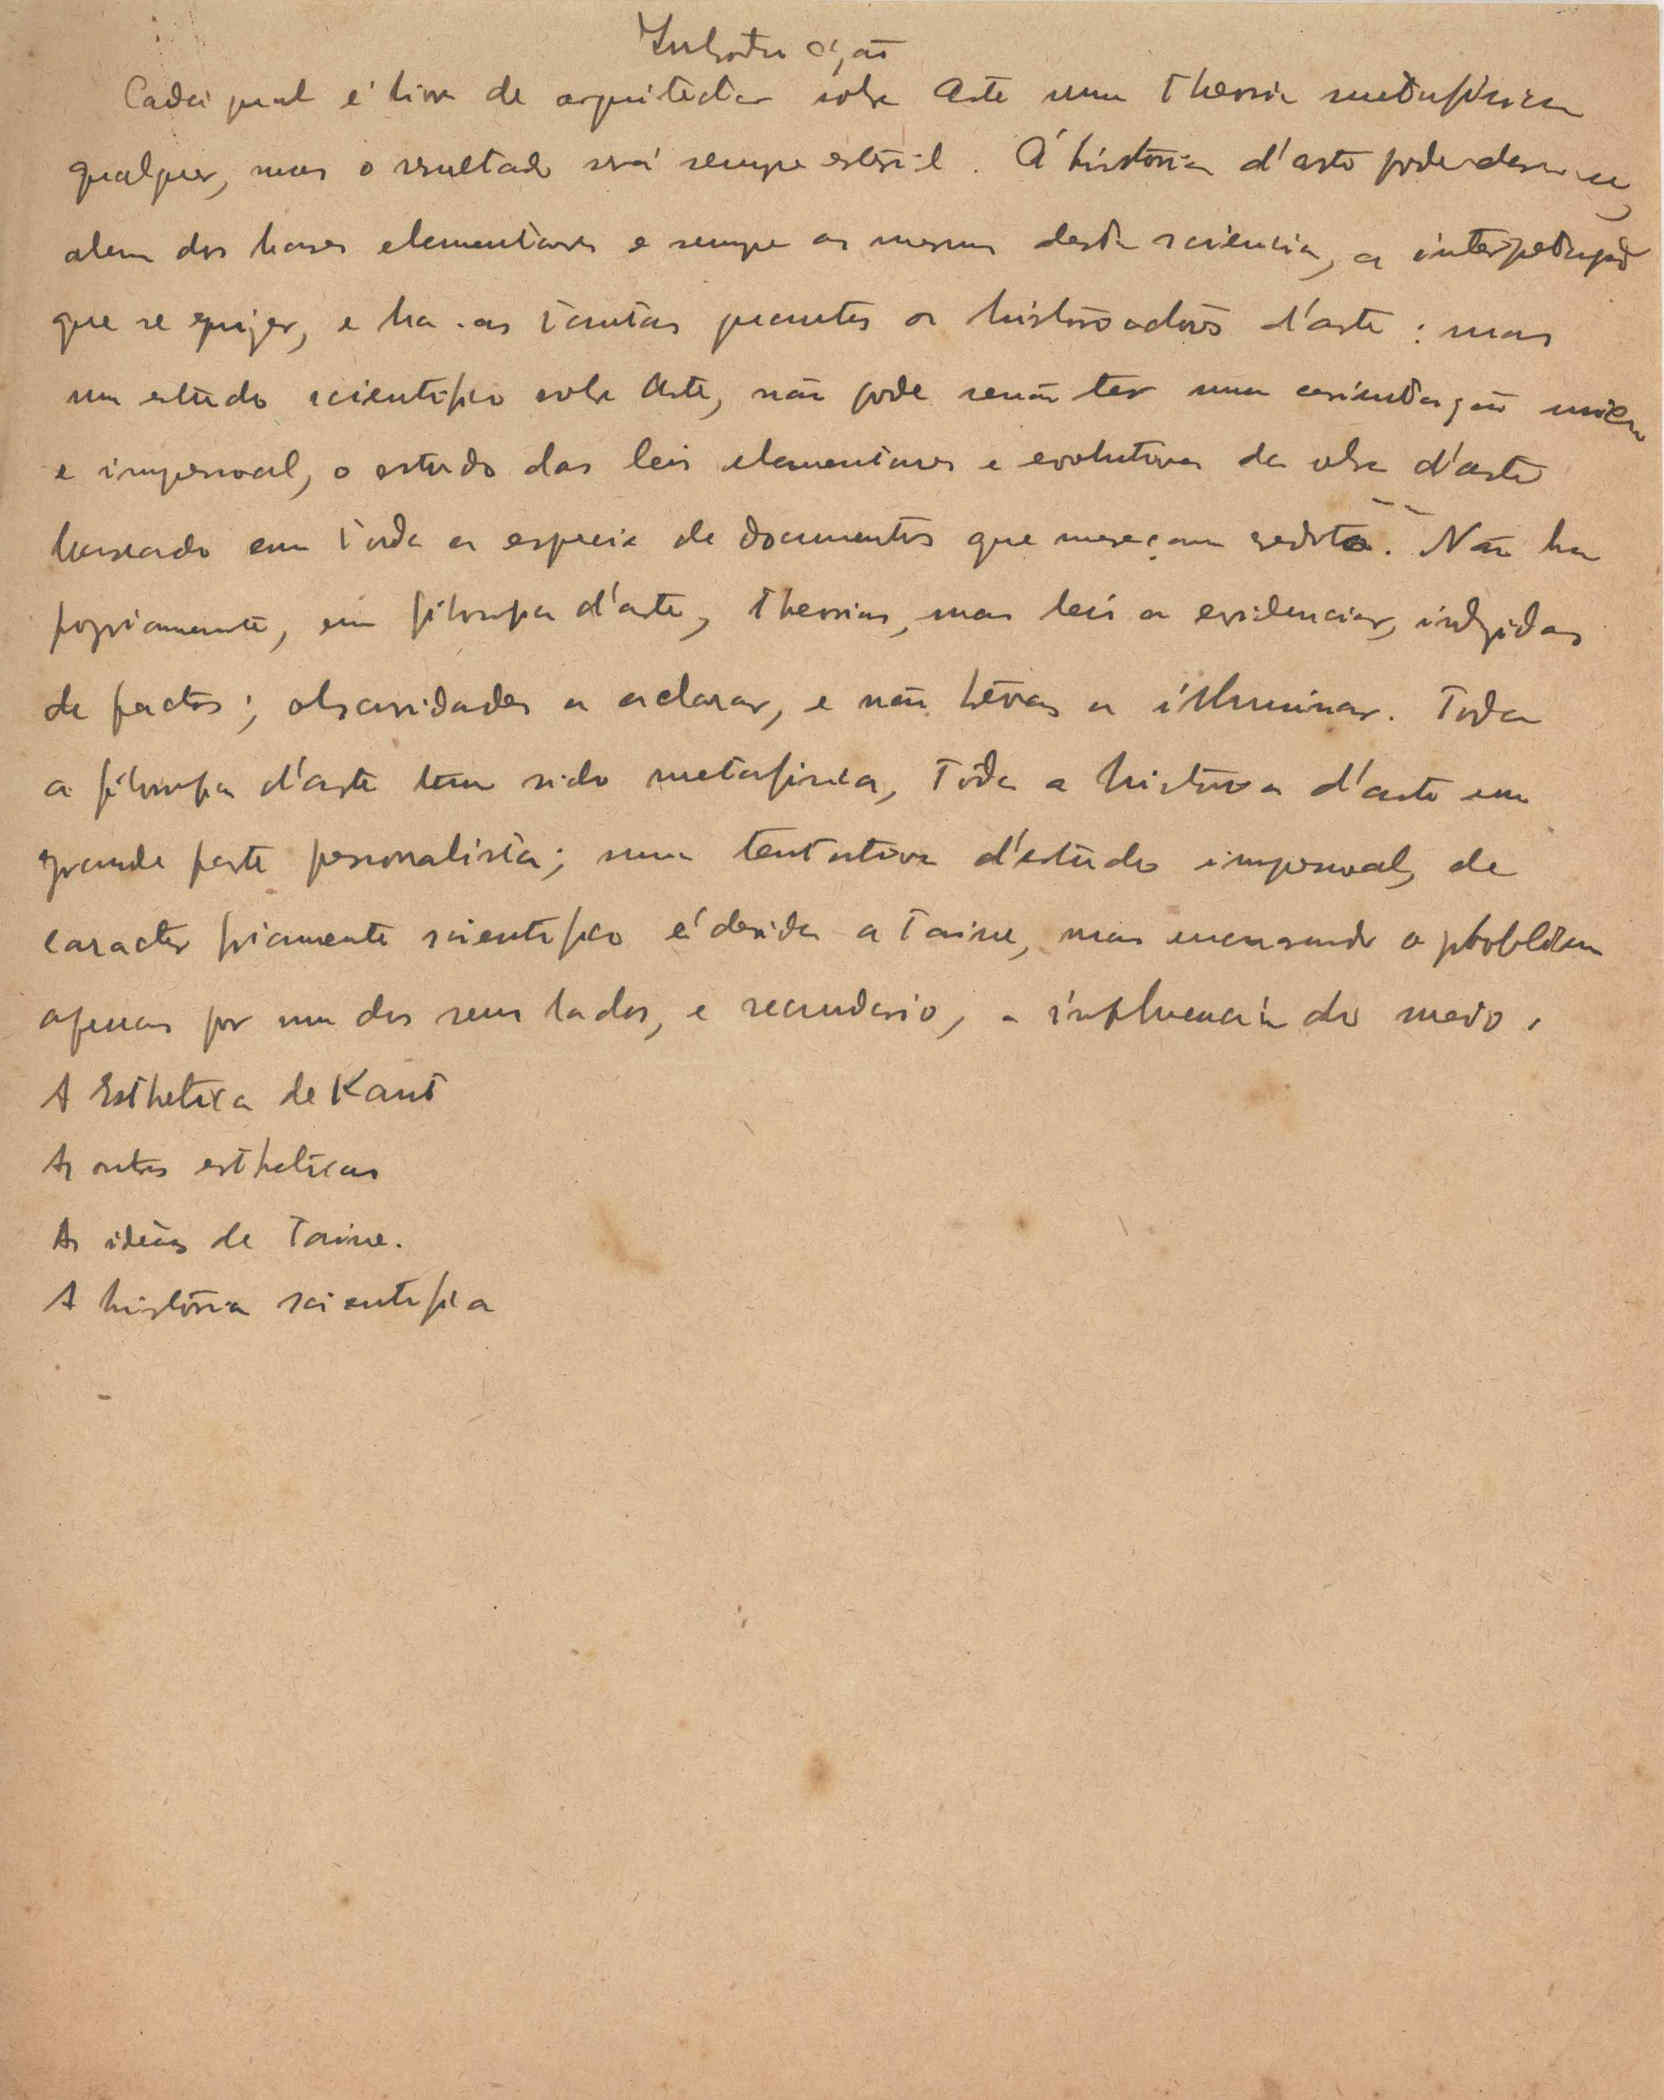 Introducção
Cada qual é livre de arquitectar sobre Arte uma theoria metafisica
qualquer, mas o resultado será sempre esteril. Á historia d'arte pode dar-se,
alem das bases elementares e sempre as mesmas desta sciencia, a interpetação
que se quizer, e ha-as tantas quantos os historiadores d'arte: mas
um estudo scientifico sobre Arte, não pode senão ter uma orientação unica
e impessoal, o estudo das leis elementares e evolutivas da obra d'arte
baseado em toda a especie de documentos que mereçam credito. Não ha
propriamente, em filosofia d'arte, theorias, mas leis a evidenciar, induzidas
de factos; obscuridades a aclarar, e não trevas a illuminar. Toda
a filosofia d'arte tem sido metafisica, toda a historia d'arte em
grande parte personalista; uma tentativa d'estudo impessoal, de
caracter friamente scientifico é devida a Taine, mas encarando o problema
apenas por um dos seus lados, e secundario, a influencia do meio.
A Esthetica de Kant
As outras estheticas
As ideias de Taine.
A historia scientifica